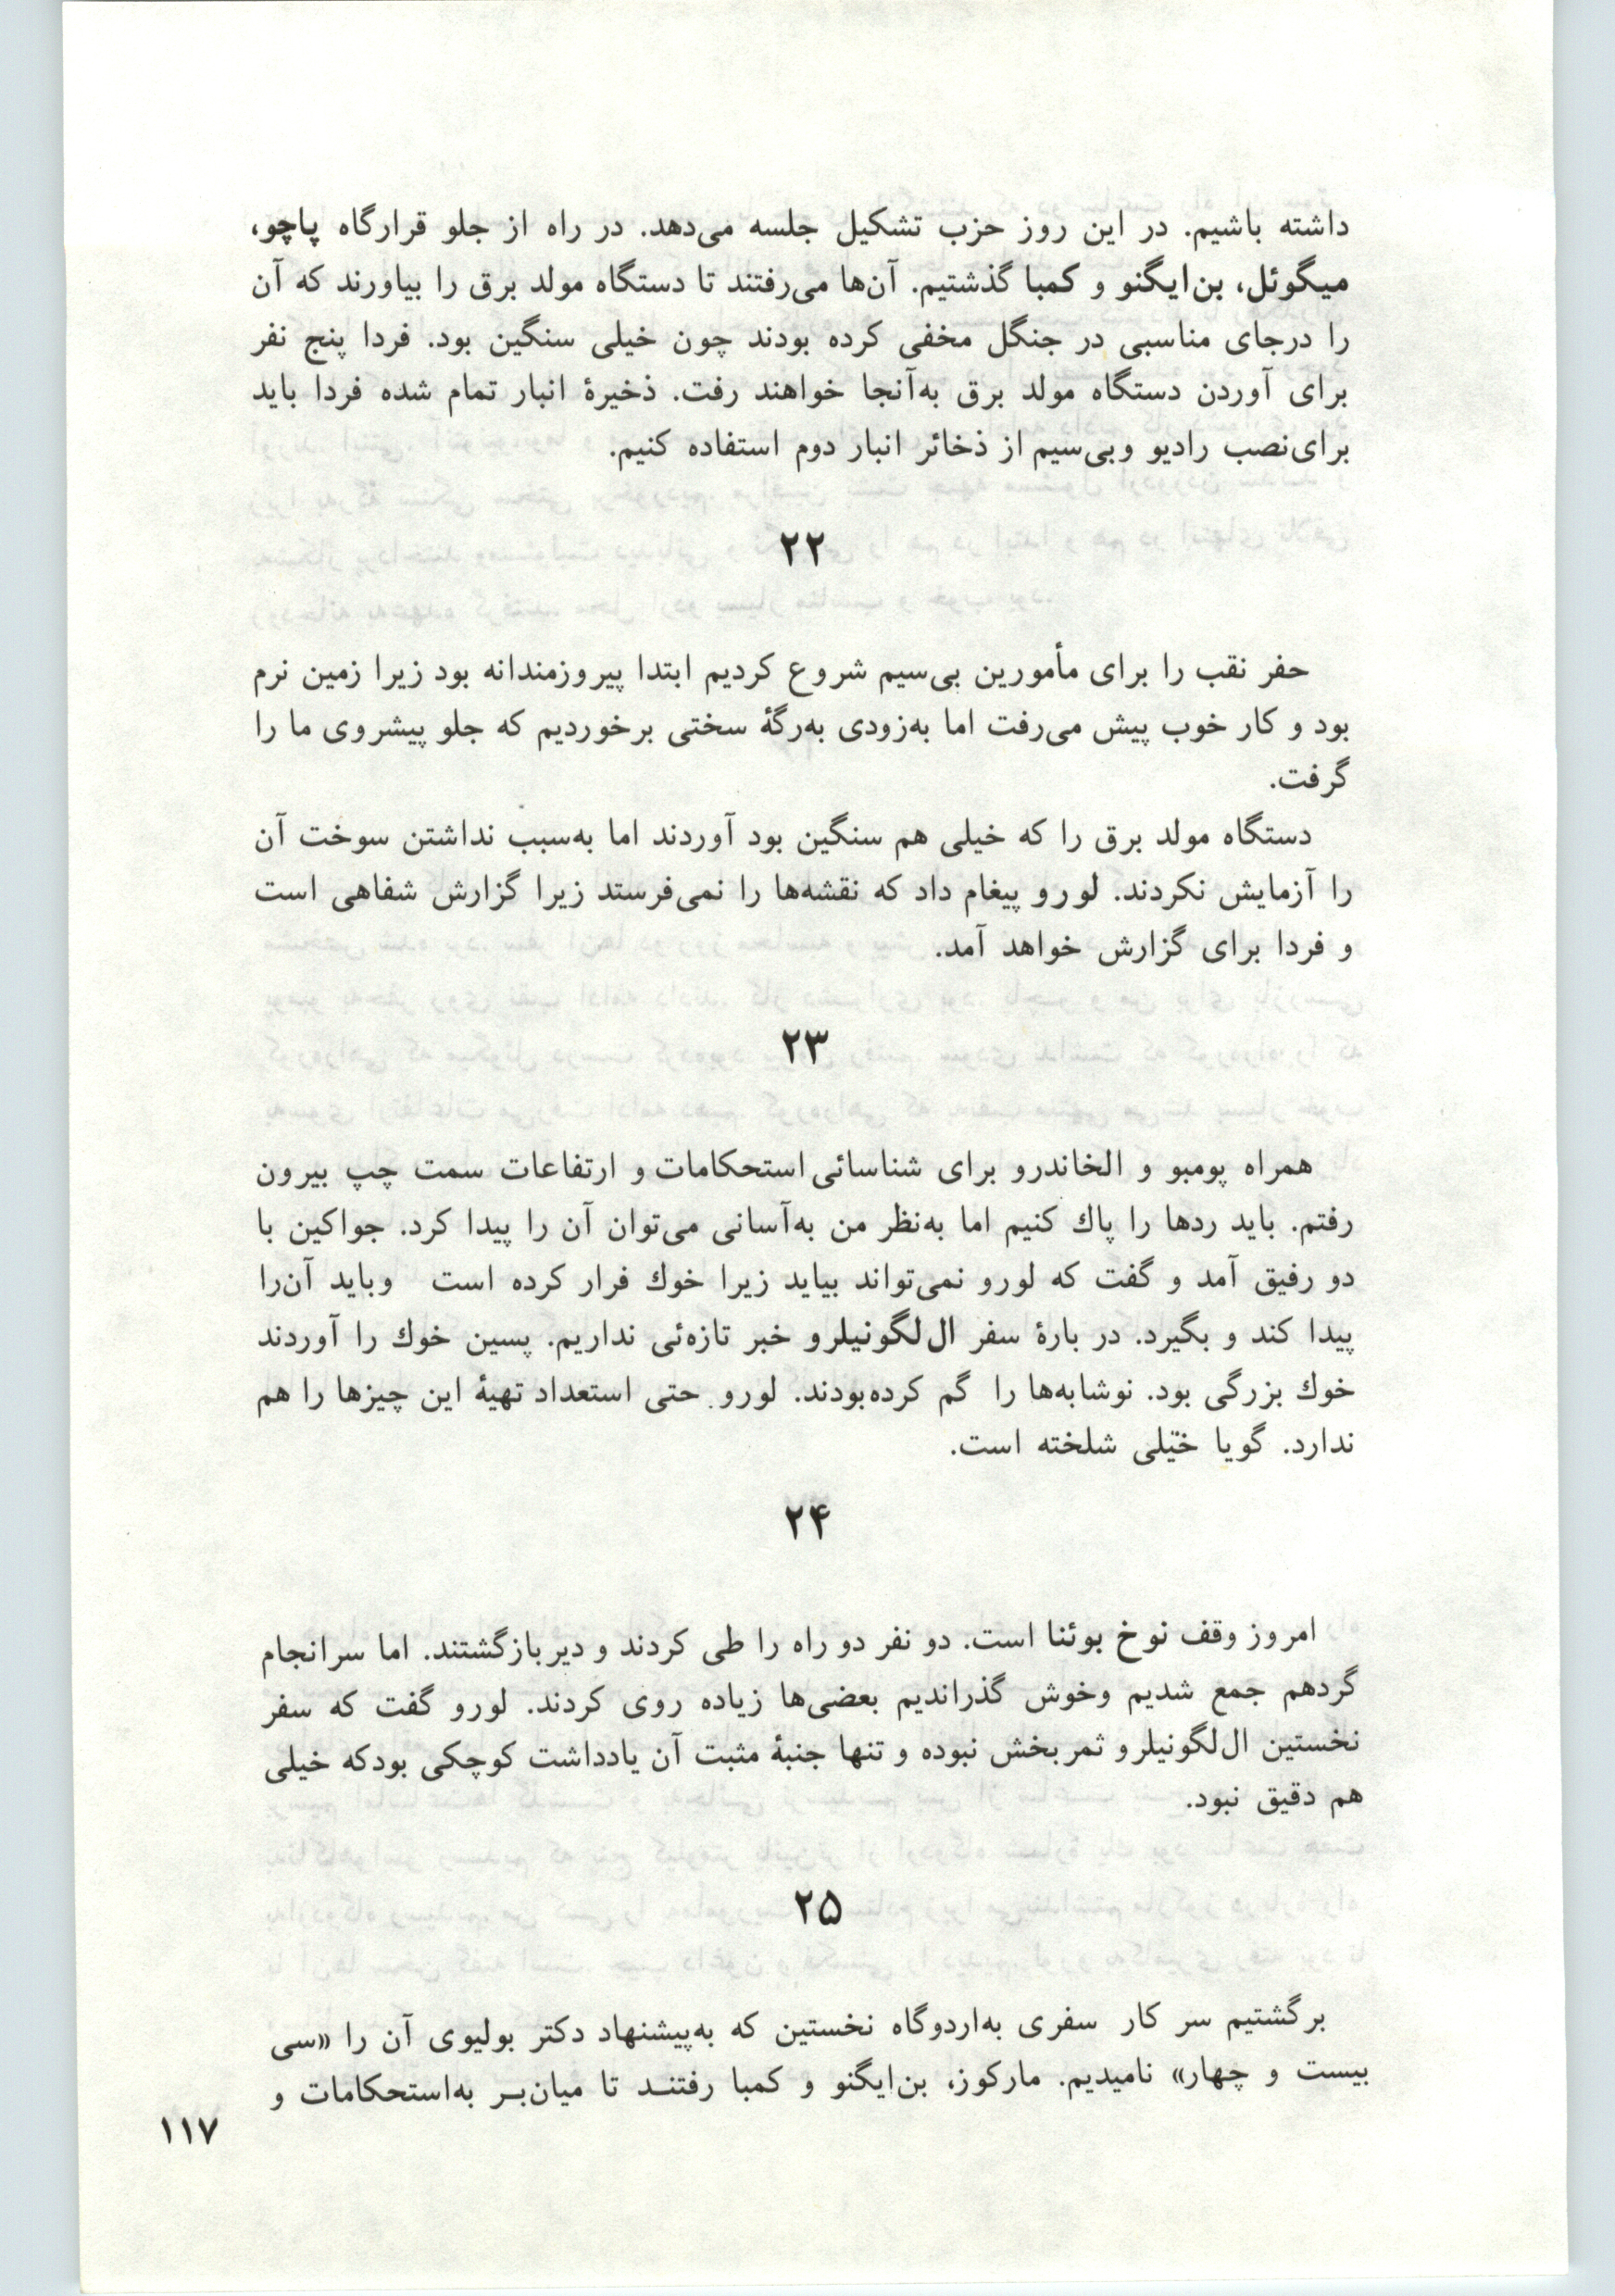 داشته باشیم. در این روز حزب تشکیل جلسه می‌دهد. در راه از جلو قرارگاه پاچو،
میگوئل، بن‌ایگنو و کمبا گذشتیم. آن‌ها می‌رفتند تا دستگاه مولد برق را بیاورند که آن
را درجای مناسبی در جنگل مخفی کرده بودند چون خیلی سنگین بود. فردا پنج نفر
برای آوردن دستگاه مولد برق به‌آنجا خواهند رفت. ذخیرهٔ انبار تمام شده فردا باید
برای‌نصب رادیو وبی‌سیم از ذخائر انبار دوم استفاده کنیم.
۲۲
حفر نقب را برای مأمورین بی‌سیم شروع کردیم ابتدا پیروزمندانه بود زیرا زمین نرم
بود و کار خوب پیش می‌رفت اما به‌زودی به‌رگهٔ سختی برخوردیم که جلو پیشروی ما را
گرفت.
دستگاه مولد برق را که خیلی هم سنگین بود آوردند اما به‌سبب نداشتن سوخت آن
را آزمایش نکردند. لورو پیغام داد که نقشه‌ها را نمی‌فرستد زیرا گزارش شفاهی است
و فردا برای گزارش خواهد آمد.
۲۳
همراه پومبو و الخاندرو برای شناسائی استحکامات و ارتفاعات سمت چپ بیرون
رفتم. باید ردها را پاك کنیم اما به‌نظر من به‌آسانی می‌توان آن را پیدا کرد. جواکین با
دو رفیق آمد و گفت که لورو نمی‌تواند بیاید زیرا خوك فرار کرده است وباید آن‌را
پیدا کند و بگیرد. در بارهٔ سفر ال‌لگونیلرو خبر تازه‌ئی نداریم. پسین خوك را آوردند
خوك بزرگی بود. نوشابه‌ها را گم کرده‌بودند. لورو حتی استعداد تهیهٔ این چیزها را هم
ندارد. گویا خیلی شلخته است.
۲۴
امروز وقف نوخ بوئنا است. دو نفر دو راه را طی کردند و دیربازگشتند. اما سرانجام
گردهم جمع شدیم وخوش گذراندیم بعضی‌ها زیاده روی کردند. لورو گفت که سفر
نخستین ال‌لگونیلرو ثمربخش نبوده و تنها جنبهٔ مثبت آن یادداشت کوچکی بودکه خیلی
هم دقیق نبود.
۲۵
برگشتیم سر کار سفری به‌اردوگاه نخستین که به‌پیشنهاد دکتر بولیوی آن را «سی
بیست و چهار» نامیدیم. مارکوز، بن‌ایگنو و کمبا رفتنـد تا میان‌بـر به‌استحکامات و
۱۱۷